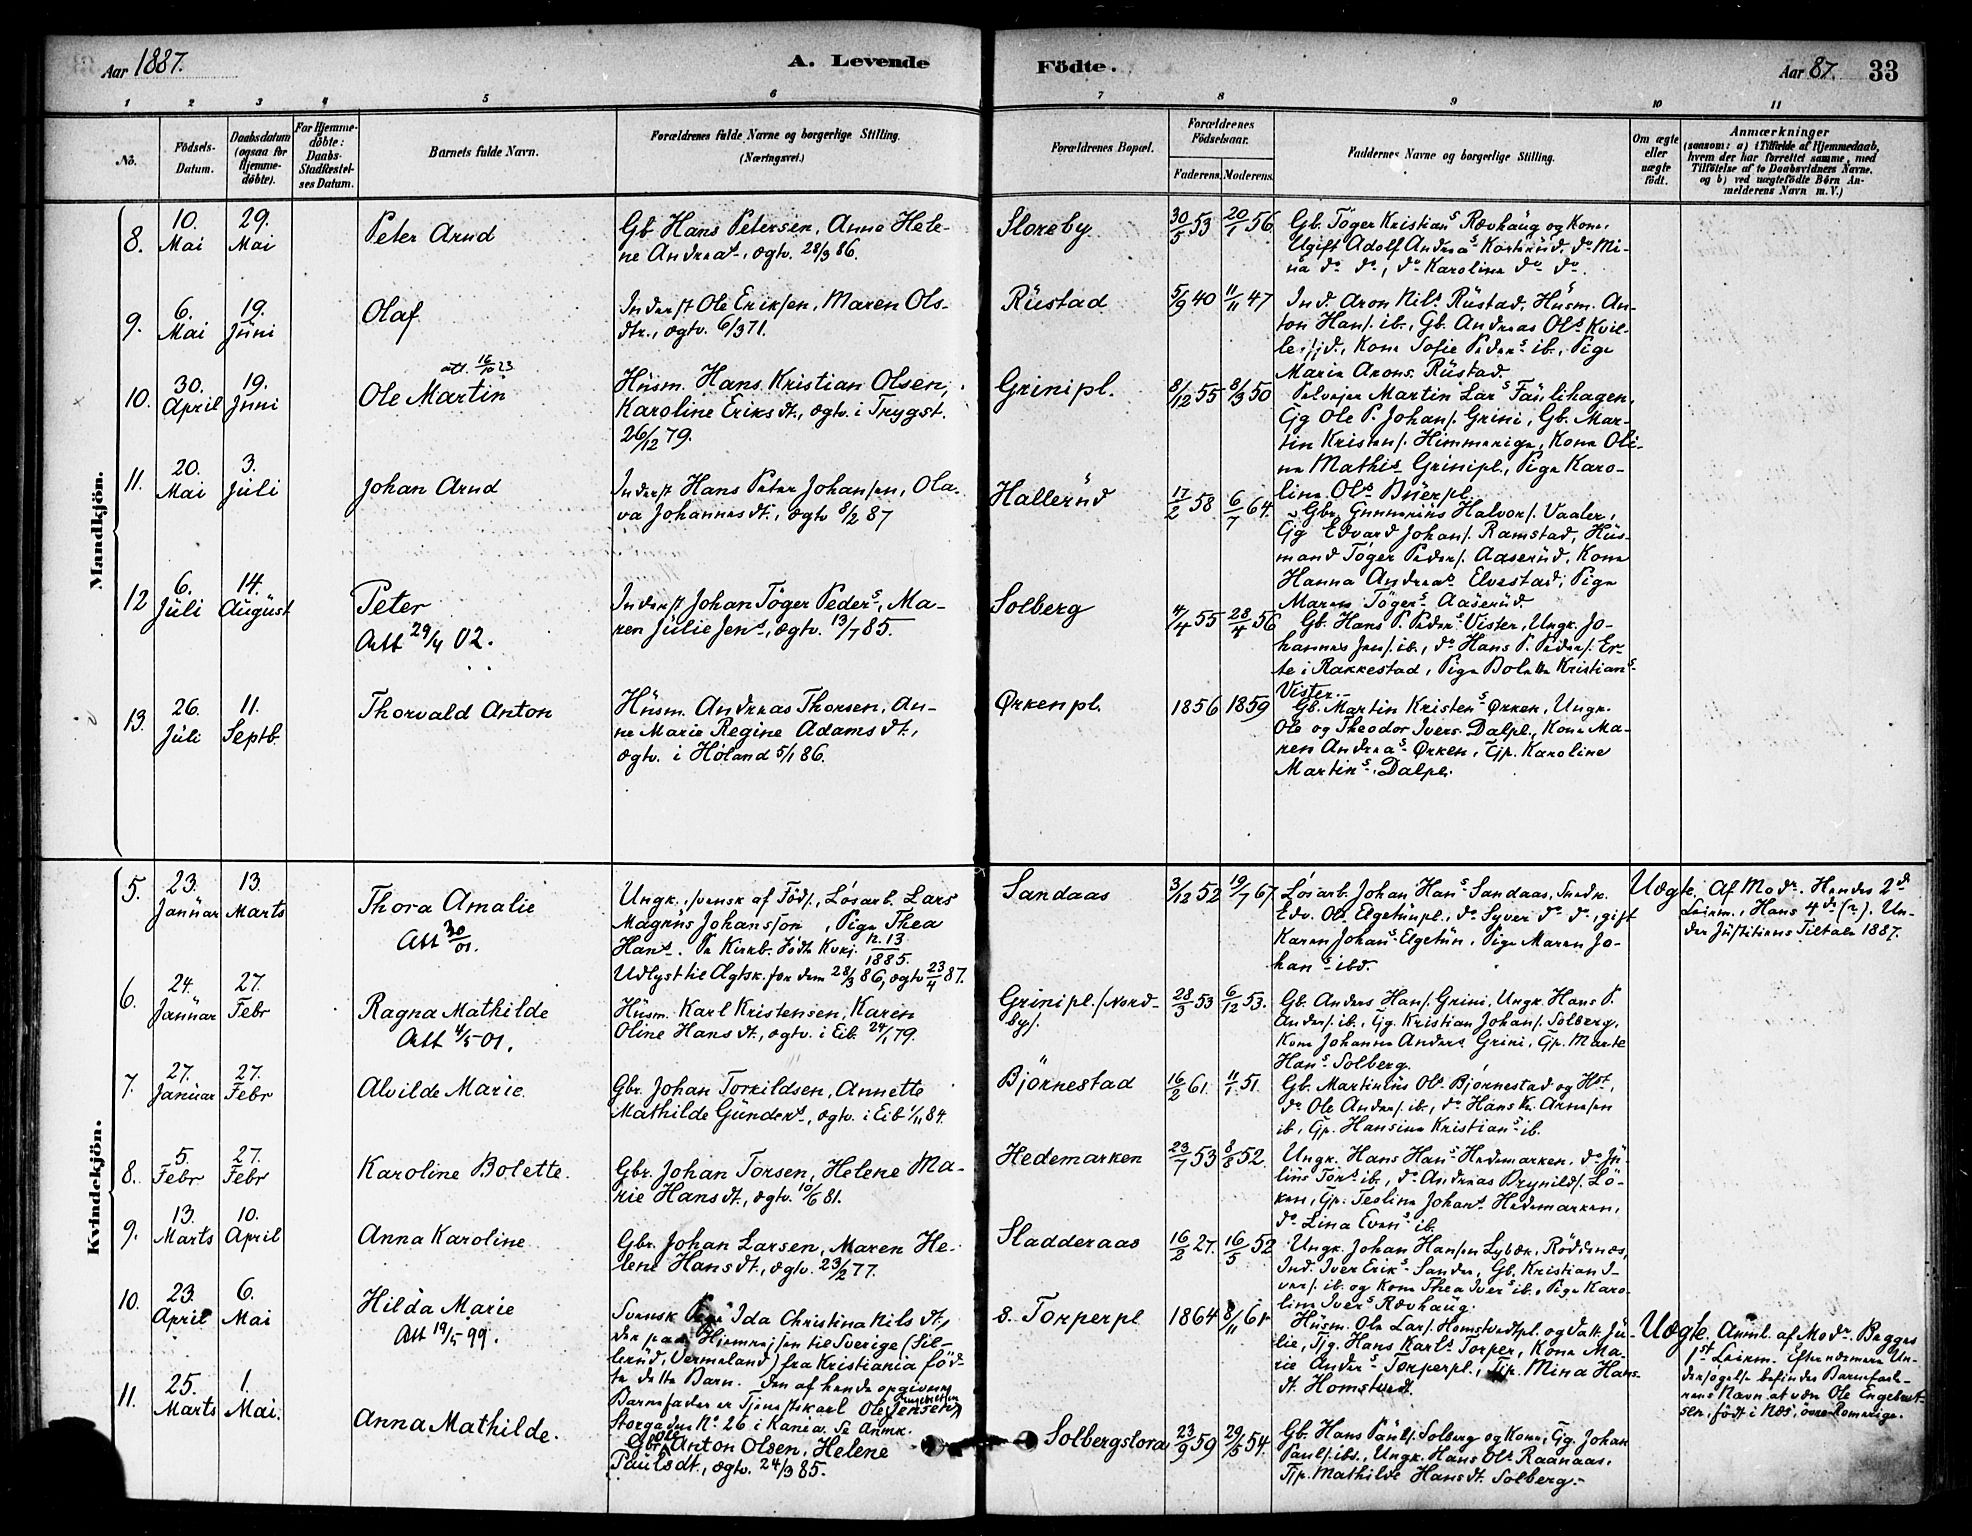 Aar 1887.
A. Levende
Födte.
Aar 87.
33
1 2 3 4 5 6 7 8 9 10 11
No.
Födsels-
Datum.
Daabsdatum
(ogsaa for
Hjemme-
döbte).
For Hjemme-
döbte:
Daabs-
Stadfæstel-
ses Datum.
Barnets fulde Navn.
Forældrenes fulde Navne og borgerlige Stilling.
(Næringsvei.)
Forældrenes Bopæl.
Forældrenes
Födselsaar.
Faderens. Moderens.
Faddernes Navne og borgerlige Stilling.
Om ægte
eller
uægte
født.
Anmærkninger
(saasom: a) i Tilfælde af Hjemmedaab,
hvem der har forrettet samme, med
Tilföielse af to Daabsvidners Navne.
og b) ved uægtefödte Börn An-
melderens Navn m. V.)
Mandkjön.
8.
10.
Mai
29.
Mai
Peter Arnd
Gb. Hans Petersen, Anna Hele-
ne Andreasd., ægtv. 28/3 86.
Sloreby
30/5 53
20/1 56
Gb. Töger Kristians Rævhaug og Kone,
Ugift Adolf Andreas Karterud, do Mi-
na do do, do Karoline do do.
9.
6.
Mai
19.
Juni
Olaf
Inderst Ole Eriksen, Maren Ols-
dtr., ægtv. 6/3 71.
Rustad
5/9 40
11/11 47
Ind. Aron Nils. Rustad, Husm. An-
ton Hans. ib., Gb. Andreas Ols. Kvil-
lesjö, Kone Sofie Peders. ib., Pige
Maria Arons. Rustad.
10.
30.
April
19.
Juni
att. 16/10 23
Ole Martin
Husm. Hans Kristian Olsen,
Karoline Eriksdt., ægtv. i Trygst.
26/12 79.
Grinipl.
8/12 55
8/3 50
Martin Lars Faulihagen,
Gg Ole P. Johans. Grini, Gb. Mar-
tin Kristens. Himmerige, Kone Oli-
ne Mathis. Grinipl., Pige Karo-
line Ols. Buerpl.
11.
20.
Mai
3.
Juli
Johan Arnd
Inderst Hans Peter Johansen, Ola-
va Johannesdt., ægtv 8/2 87
Hallerud
17/2 58
6/7 64.
Gbr. Gunnerius Halvors. Vaaler,
Gg Edvard Johans. Ramstad, Hus-
mand Töger Peders. Aaserud, Kone
Hanna Andreas. Elvestad, Pige
Maren Tögers. Aaserud.
12
6.
Juli
14.
August
Peter
Att 29/4 02.
Inderst Johan Töger Peders., Ma-
ren Julie Jensd., ægtv. 13/7 85.
Solberg
4/4 55
28/4 56
Gb. Hans P. Peders. Vister, Ungk. Jo-
hannes Jens. ib., do Hans P. Peders. Er-
te i Rakkestad, Pige Bolette Kristians.
Vister.
13.
26.
Juli
11.
Septb.
Thorvald Anton
Husm. Andreas Thorsen, An-
ne Marie Regine Adamsdt.,
ægtv. i Höland 5/1 86.
Ørkenpl.
1856
1859
Gb. Martin Kristens. Ørken, Ungk.
Ole og Theodor Ivers. Dalpl., Kone Ma-
ren Andreas. Ørken, Gp. Karoline
Martins. Dalpl.
Kvindekjön.
5.
23.
Januar
13.
Marts
Thora Amalie
Att 30/01.
Ungk., svensk af Föds., Lösarb. Lars
Magnus Johansson, Pige Thea
Hansd. Se Kirkb. Födte Kvkj. n. 13 1885.
Udlyst til Ægtsk. for dem 28/3 86, ægtv 23/4 87.
Sandaas
3/12 52
19/7 67.
Lösarb. Johan Hans. Sandaas,
Edv. Ols. Elgetunpl., do Syver do do, gift
Karen Johans. Elgetun, Pige Maren Jo-
hans. ibd.
Uægte.
Af Modr. Hendes 2d
Leierm., Hans 4de (?). Un-
der Justitiens Tiltale 1887.
6.
24.
Januar
27.
Febr
Ragna Mathilde
Att 4/5 01.
Husm. Karl Kristensen, Karen
Oline Hansdt., ægtv. i Eib. 24/1 79.
Grinipl. /Nord-
by/.
28/3 53
6/12 53.
Gb. Anders Hans. Grini, Ungk. Hans P.
Anders. ib., Gg. Kristian Johans. Solberg,
Kone Johanne Anders. Grini, Gp. Marte
Hans. Solberg.
7.
27.
Januar
27.
Febr
Alvilde Marie.
Gbr. Johan Torkildsen, Annette
Mathilde Gundersd., ægtv. i Eib 1/11 84.
Björnestad
16/2 61.
11/1 51.
Gb. Martinius Ols. Björnestad og Hst.,
do Ole Anders. ib., do Hans Kr. Arnesen
ib., Gp. Hansine Kristians. ib.
8.
5.
Febr
27.
Febr
Karoline Bolette.
Gbr. Johan Torsen, Helene Ma-
rie Hansdt., ægtv. 10/6 81.
Hedemarken
23/7 53
8/8 52.
Ungk. Hans Hans. Hedemarken, do Ju-
lius Tors. ib., do Andreas Brynilds. Lö-
ken, Gp. Teoline Johans. Hedemarken,
do Lina Evens. ib.
9.
13.
Marts
10.
April
Anna Karoline
Gbr. Johan Larsen, Maren He-
lene Hansdt., ægtv. 23/2 77.
Sladderaas
16/2 27.
16/5 52
Ungk. Johan Hansen Lybæk, Röddenæs,
Ind. Iver Eriks. Sander, Gb. Kristian I-
vers. ib. og Kone Thea Ivers. ib., Pige Karo-
line Ivers. Rævhaug.
10.
23.
April
6.
Mai
Hilda Marie
Att 19/5 99.
Svensk Pige Ida Christina Nilsdt,
der paa Hjemreisen til Sverige (Sil-
lerud, Vermeland) fra Kristiania föd-
te dette Barn. Den af hende opgivne
Barnefader er Tjenestekarl Ole Jensen Engebretsen
Storgaden No 26 i Krania. Se Anmk.
s. Torperpl
1864
8/11 61
Husm. Ole Lars. Homstvedtpl. og Datt. Ju-
lie, Tjg. Hans Karls. Torper, Kone Ma-
rie Anders. Torperpl., Tjp. Mina Hans-
dt. Homstvedt.
Uægte.
Anml. af Modr. Begges
1st Leierm. Efter nærmere Un-
dersögelse befindes Barnefade-
rens Navn at være Ole Engebret-
sen, födt i Næs, övre Romerige.
11.
25.
Marts
1.
Mai.
Anna Mathilde.
Gbr. Ole Anton Olsen, Helene
Paulsdt., ægtv. 24/3 85.
Solbergstora
23/9 59
29/5 54.
Gb. Hans Pauls. Solberg og Kone, Gg. Johan
Pauls. ibd., Ungk. Hans Ols. Raanaas,
Tjp. Mathilde Hansdt. Solberg.